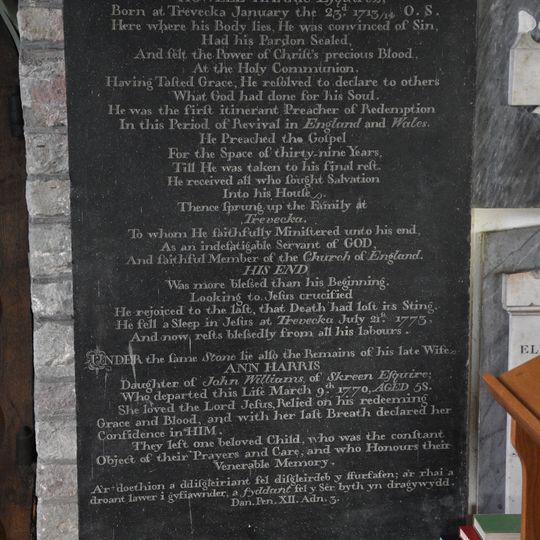 HOWELL HARRIS Esquire,
Born at Trevecka January the 23d. 1713/14 O. S.
Here where his Body lies, He was convinced of Sin,
Had his Pardon Sealed,
And felt the Power of Christ's precious Blood,
At the Holy Communion.
Having Tasted Grace, He resolved to declare to others
What God had done for his Soul.
He was the first itinerant Preacher of Redemption
In this Period of Revival in England and Wales.
He Preached the Gospel
For the Space of thirty-nine Years,
Till He was taken to his final rest.
He received all who sought Salvation
Into his House.
Thence sprung up the Family at
Trevecka.
To whom He faithfully Ministered unto his end,
As an indefatigable Servant of GOD,
And faithful Member of the Church of England.
HIS END
Was more blessed than his Beginning.
Looking to Jesus crucified
He rejoiced to the last, that Death had lost its Sting.
He fell a Sleep in Jesus at Trevecka July 21st. 1773.
And now rests blessedly from all his labours.
UNDER the same Stone lie also the Remains of his late Wife
ANN HARRIS
Daughter of John Williams, of Skreen Esquire;
Who departed this Life March 9th. 1770, AGED 58.
She loved the Lord Jesus, Relied on his redeeming
Grace and Blood, and with her last Breath declared her
Confidence in HIM.
They left one beloved Child, who was the constant
Object of their Prayers and Care, and who Honours their
Venerable Memory.
A'r doethion a ddisgleiriant fel disgleirdeb y ffurfafen; a'r rhai a
droant lawer i gyfiawnder, a fyddant fel y Sêr byth yn dragywydd.
Dan. Pen. XII. Adn. 3.
EL